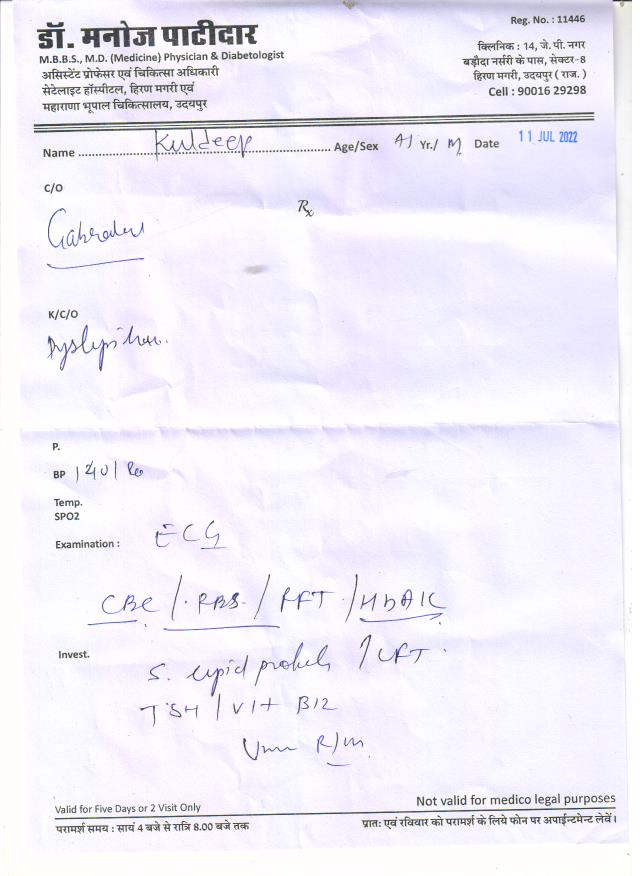 Reg. No. : 11446
डॉ. मनोज पाटीदार
M.B.B.S., M.D. (Medicine) Physician & Diabetologist
असिस्टेंट प्रोफेसर एवं चिकित्सा अधिकारी
सेटेलाइट हॉस्पीटल, हिरण मगरी एवं
महाराणा भूपाल चिकित्सालय, उदयपुर
क्लिनिक : 14, जे. पी. नगर
बड़ौदा नर्सरी के पास, सेक्टर-8
हिरण मगरी, उदयपुर ( राज. )
Cell : 90016 29298
Name Kuldeep Age/Sex Yr./ M Date 11 JUL 2022
C/O
Rx
K/C/O
P.
BP 140/80
Temp.
SPO2
Examination : ECG
CBC / RBS / RFT / HbA1C
Invest.
S. Lipid profile / LFT
TSH / Vit B12
R/M
Not valid for medico legal purposes
Valid for Five Days or 2 Visit Only
परामर्श समय : सायं 4 बजे से रात्रि 8.00 बजे तक
प्रात: एवं रविवार को परामर्श के लिये फोन पर अपाईन्टमेन्ट लेवें।